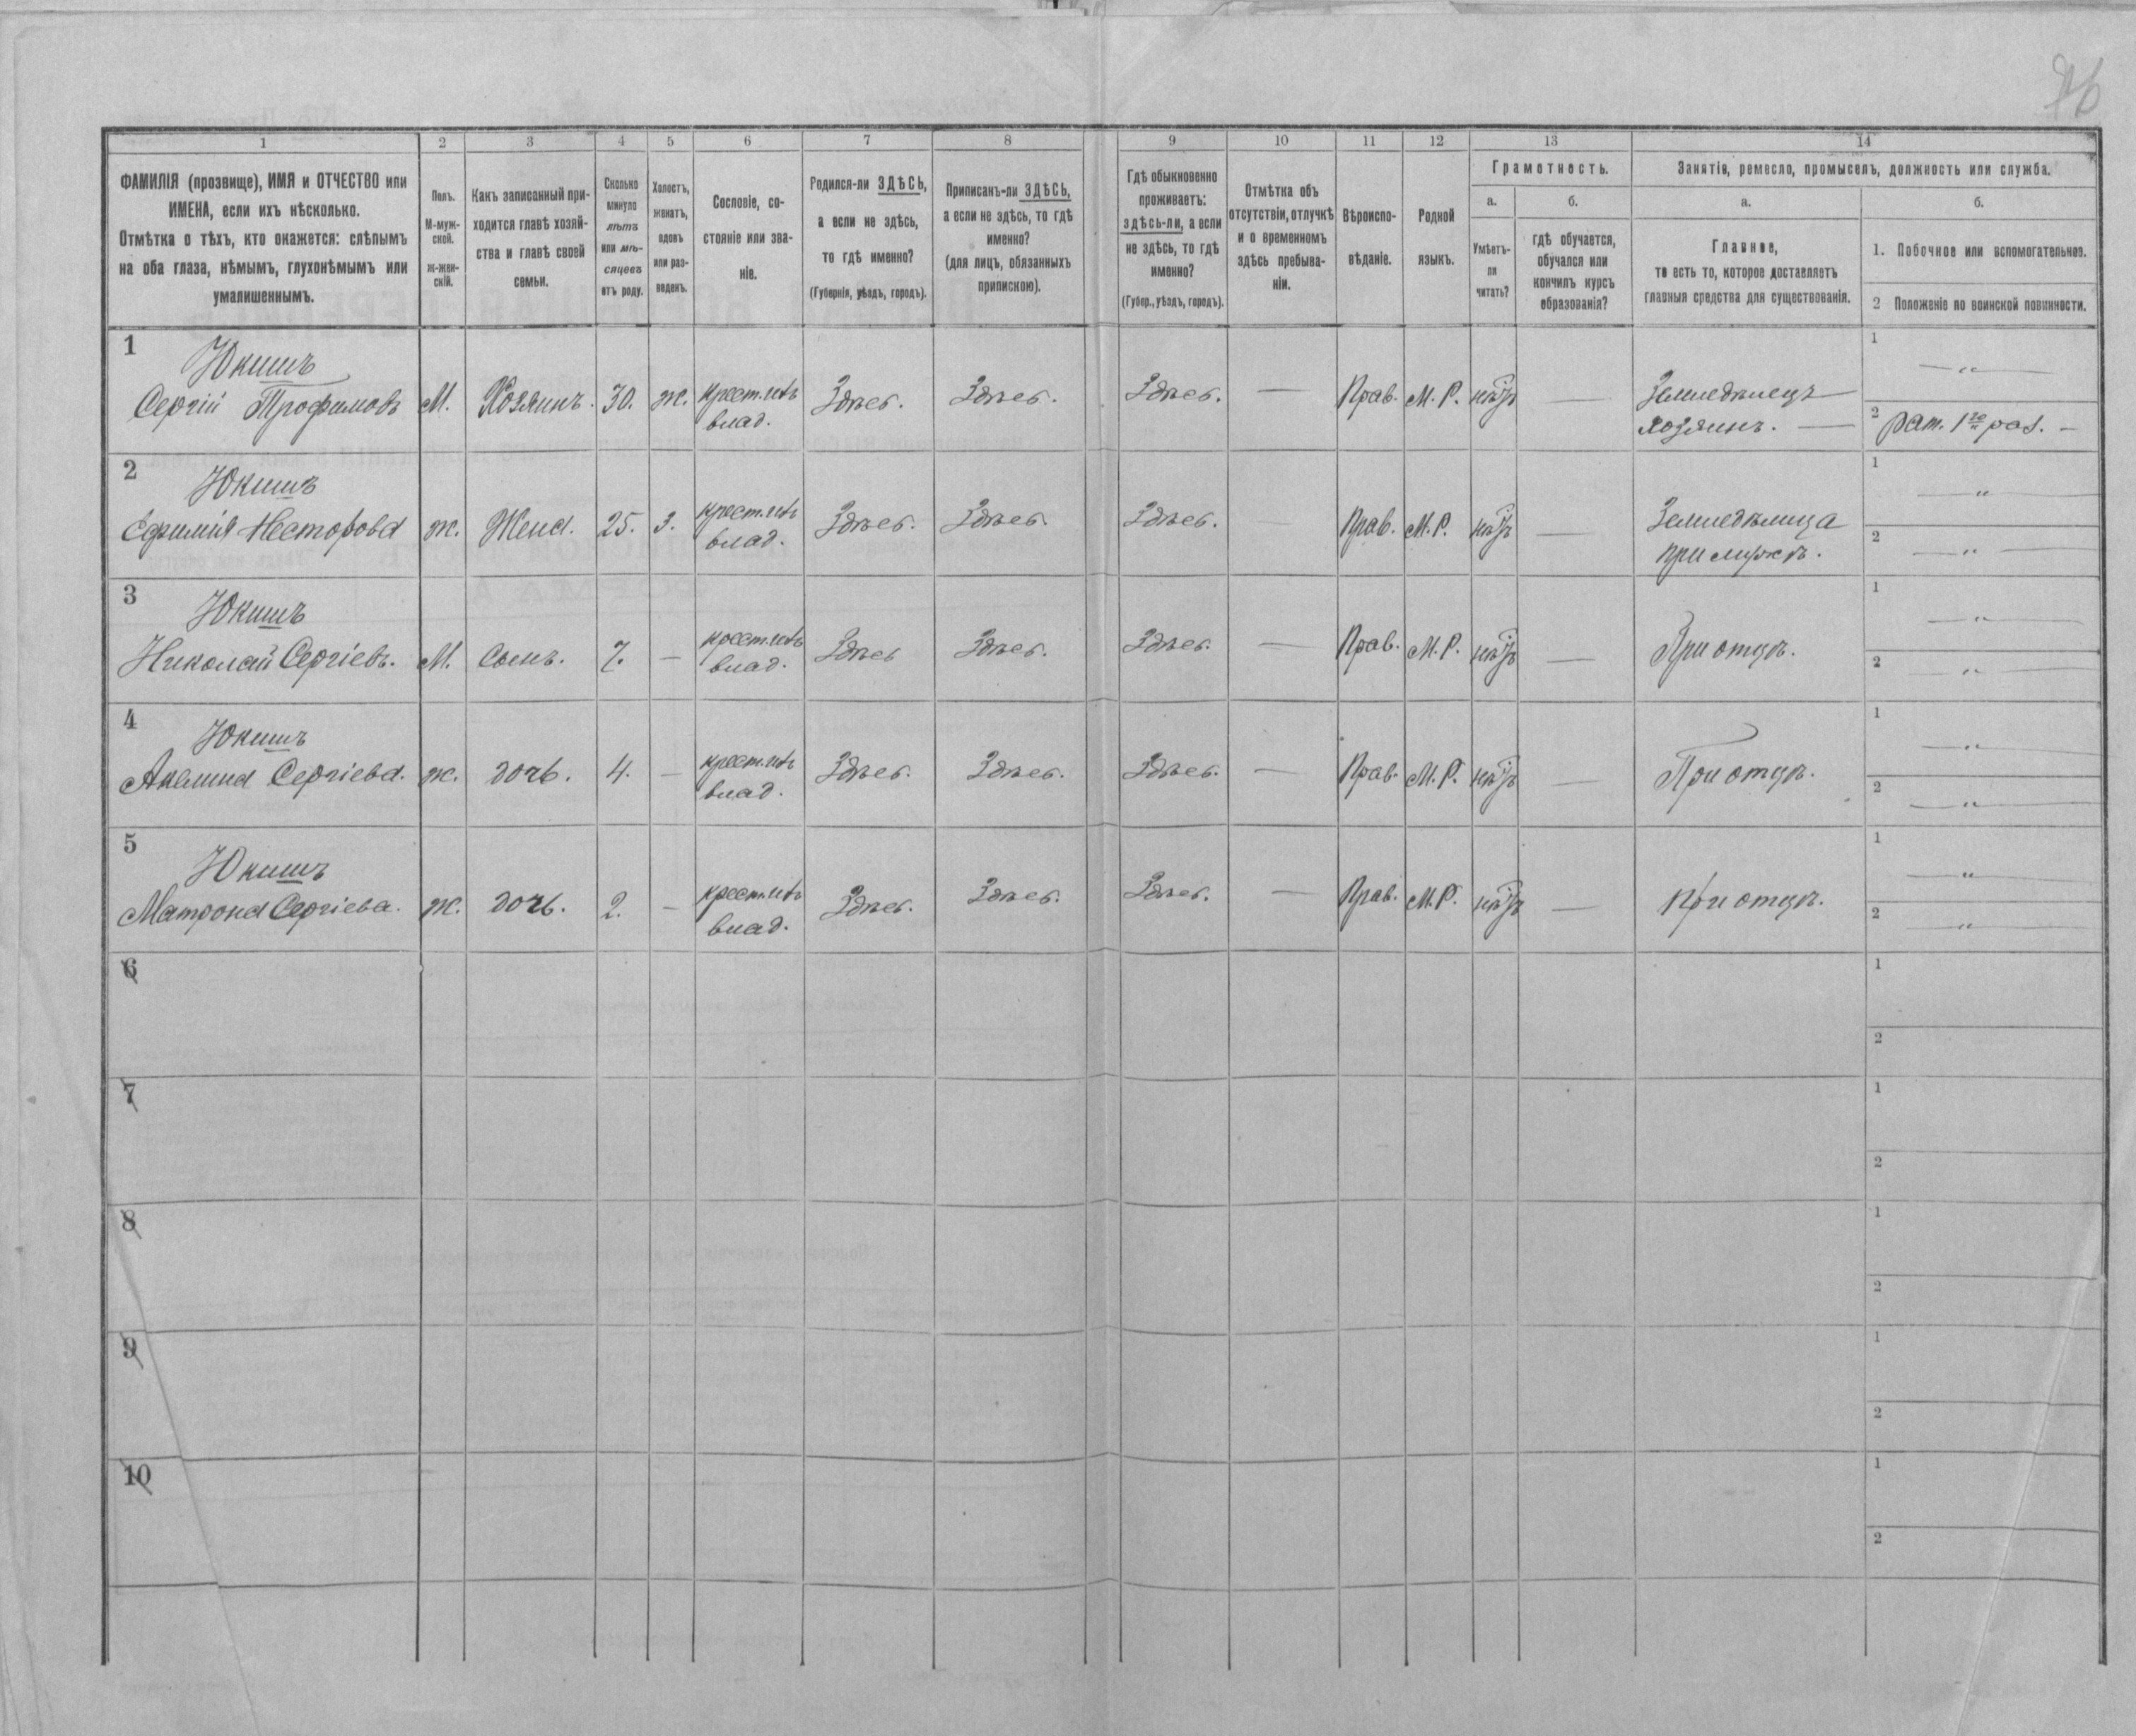 96
1 2 3 4 5 6 7 8 9 10 11 12 13 14
ФАМИЛІЯ (прозвище), ИМЯ и ОТЧЕСТВО или
ИМЕНА, если ихъ нѣсколько.
Отмѣтка о тѣхъ, кто окажется: слѣпымъ
на оба глаза, нѣмымъ, глухонѣмымъ или
умалишеннымъ.
Полъ.
М-муж-
ской.
ж-жен-
скій.
Какъ записанный при-
ходится главѣ хозяй-
ства и главѣ своей
семьи.
Сколько
минуло
лѣтъ
или мѣ-
сяцевъ
отъ роду.
Холостъ,
женатъ,
вдовъ
или раз-
веденъ.
Сословіе, со-
стояніе или зва-
ніе.
Родился-ли ЗДѢСЬ,
а если не здѣсь,
то гдѣ именно?
(Губернія, уѣздъ, городъ).
Приписанъ-ли ЗДѢСЬ,
а если не здѣсь, то гдѣ
именно?
(для лицъ, обязанныхъ
припискою).
Гдѣ обыкновенно
проживаетъ:
здѣсь-ли, а если
не здѣсь, то гдѣ
именно?
(Губер., уѣздъ, городъ).
Отмѣтка объ
отсутствіи, отлучкѣ
и о временномъ
здѣсь пребыва-
ніи.
Вѣроиспо-
вѣданіе.
Родной
языкъ.
Грамотность.
а.
Умѣетъ-
ли
читать?
б.
гдѣ обучается,
обучался или
кончилъ курсъ
образованія?
Занятіе, ремесло, промыселъ, должность или служба.
а.
Главное,
то есть то, которое доставляетъ
главныя средства для существованія.
б.
1. Побочное или вспомогательное.
2 Положеніе по воинской повинности.
1
Юкишъ
Сергій Трофимовъ М. Хозяинъ. 30. ж. Крест. изъ влад. Здѣсь. Здѣсь. Здѣсь. — Прав. М. Р. нѣтъ — Земледѣлецъ
хозяинъ. —
1 — " —
2 рат. 1го раз. —
2
Юкишъ
Ефимія Несторова ж. Жена. 25. з. крест. изъ влад. Здѣсь. Здѣсь. Здѣсь. — Прав. М. Р. нѣтъ — Земледѣлица
при мужѣ.
1 — " —
2 — " —
3
Юкишъ
Николай Сергіевъ. М. Сынъ. 7. — крест. изъ влад. Здѣсь Здѣсь. Здѣсь. — Прав. М. Р. нѣтъ — При отцѣ.
1 — " —
2 — " —
4
Юкишъ
Акилина Сергіева. ж. дочь. 4. — крест. изъ влад. Здѣсь. Здѣсь. Здѣсь. — Прав. М. Р. нѣтъ — При отцѣ.
1 — " —
2 — " —
5
Юкишъ
Матрона Сергіева. ж. дочь. 2. — крест. изъ влад. Здѣсь. Здѣсь. Здѣсь. — Прав. М. Р. нѣтъ — при отцѣ.
1 — " —
2 — " —
6
1
2
7
1
2
8
1
2
9
1
2
10
1
2